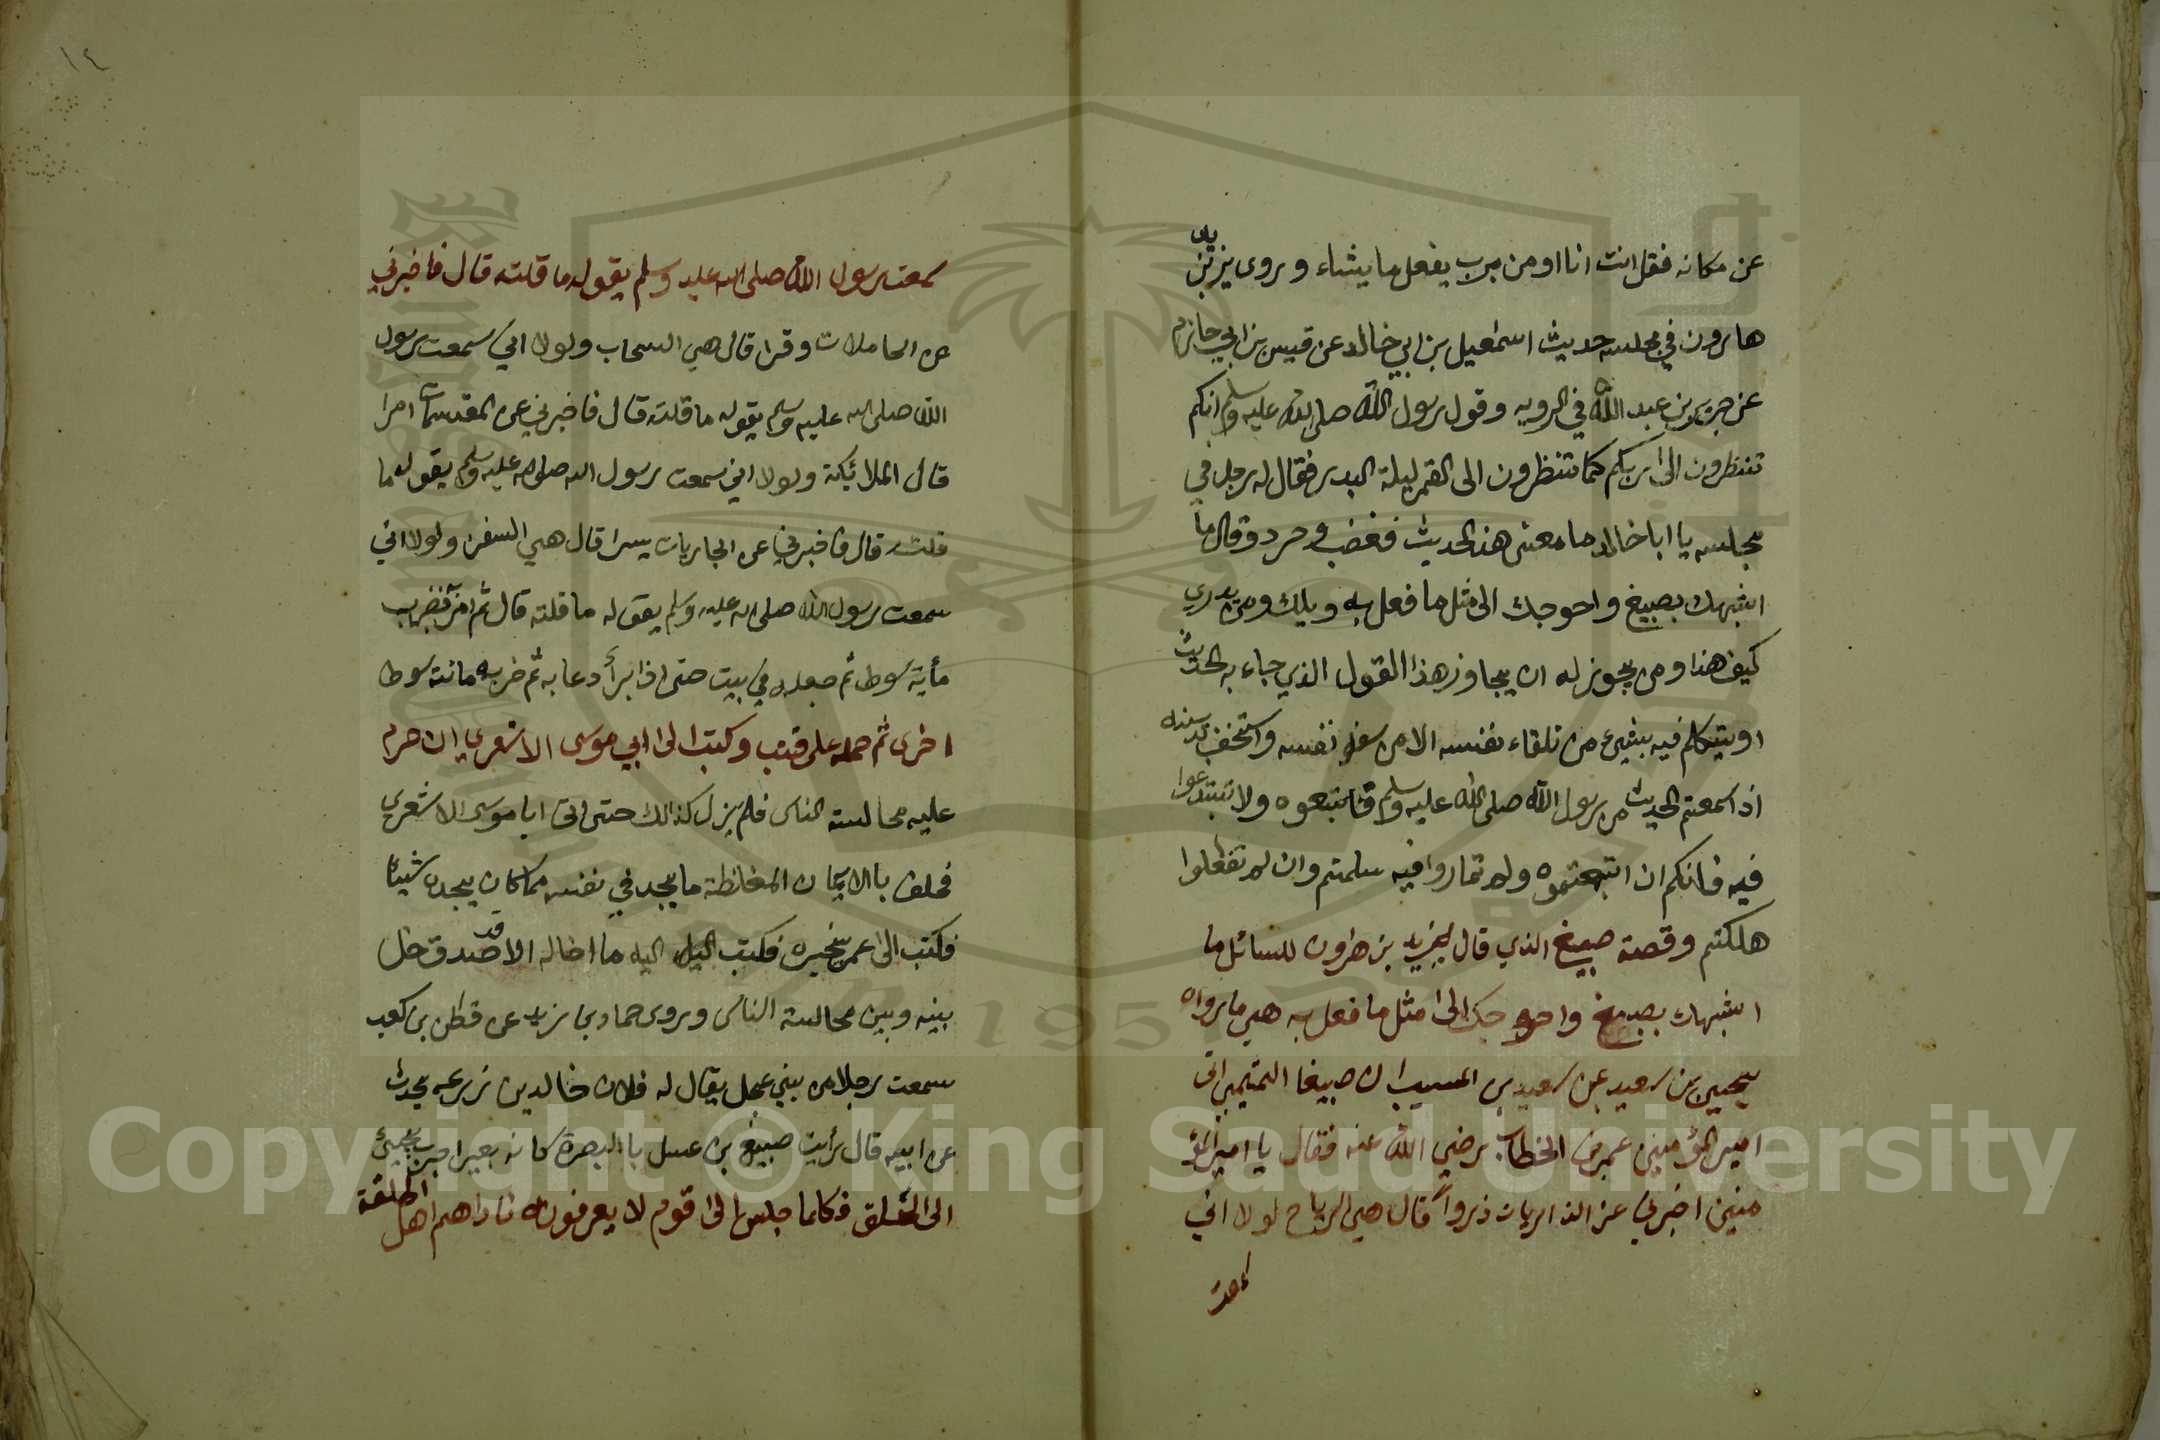 عن مكانه فقل انت انا اومن برب يفعل ما يشاء وروى يزيد بن
هارون في مجلسه حديث اسمعيل بن ابي خالد عن قيس بن ابي حازم
عن جرير بن عبد الله في الرويه وقول رسول الله صلى الله عليه وسلم انكم
تنظرون الى ربكم كما تنظرون الى القمر ليلة البدر فقال له رجل في
مجلسه يا ابا خالد ما معنى هذا الحديث فغضب وحرد وقال ما
اشبهك بصبيغ واحوجك الى مثل ما فعل به ويلك ومن يدري
كيف هذا ومن يجوز له ان يجاوز هذا القول الذي جاء به الحديث
او يتكلم فيه بشيء من تلقاء نفسه الا من سفه نفسه واستخف بدينه
اذا سمعتم الحديث من رسول الله صلى الله عليه وسلم فاتبعوه ولا تبتدعوا
فيه فانكم ان اتبعتموه ولم تماروا فيه سلمتم وان لم تفعلوا
هلكتم وقصة صبيغ الذي قال يزيد بن هارون للسائل ما
اشبهك بصبيغ واحوجك الى مثل ما فعل به هي ما رواه
يحيى بن سعيد عن سعيد بن المسيب ان صبيغا التميمي اتى
امير المؤمنين عمر بن الخطاب رضي الله عنه فقال يا امير المؤ
منين اخبرني عن الذاريات ذروا قال هي الرياح لولا اني
سمعت
١٤
سمعت رسول الله صلى الله عليه وسلم يقوله ما قلته قال فاخبرني
عن الحاملات وقرا قال هي السحاب ولولا اني سمعت رسول
الله صلى الله عليه وسلم يقوله ما قلته قال فاخبرني عن المقسمات امرا
قال الملائكة ولولا اني سمعت رسول الله صلى الله عليه وسلم يقوله ما
قلته قال فاخبرني عن الجاريات يسرا قال هي السفن ولولا اني
سمعت رسول الله صلى الله عليه وسلم يقوله ما قلته قال ثم امر به فضرب
مأية سوط ثم جعله في بيت حتى اذا برأ دعا به ثم ضربه مائة سوط
اخرى ثم حمله على قتب وكتب الى ابي موسى الاشعري ان حرم
عليه مجالسة الناس فلم يزل كذالك حتى اتى ابا موسى الاشعري
فحلف بالايمان المغلظة ما يجد في نفسه مما كان يجده شيئا
فكتب الى عمر يخبره فكتب اليه ما اخاله الا قد صدق خل
بينه وبين مجالسة الناس وروى حماد بن زيد عن قطن بن كعب
سمعت رجلا من بني عجل يقال له فلان خالد بن زرعه يحدث
عن ابيه قال رأيت صبيغ بن عسل بالبصرة كانه بعير اجرب يجيئ
الى الحلق فكلما جلس الى قوم لا يعرفونه ناداهم اهل الحلقة
Copyright © King Saud University
195